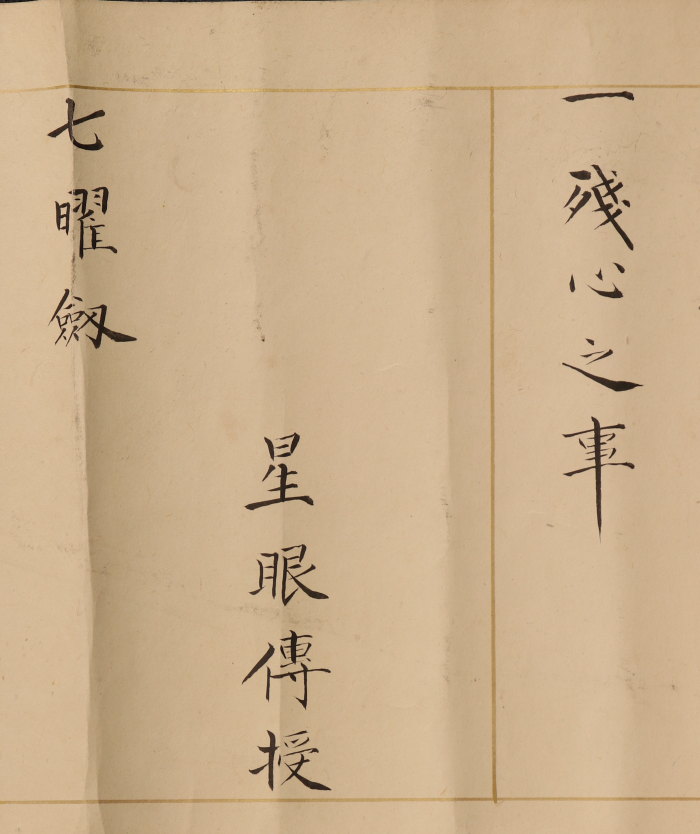 一殘心之事
星眼傳授
七曜劔